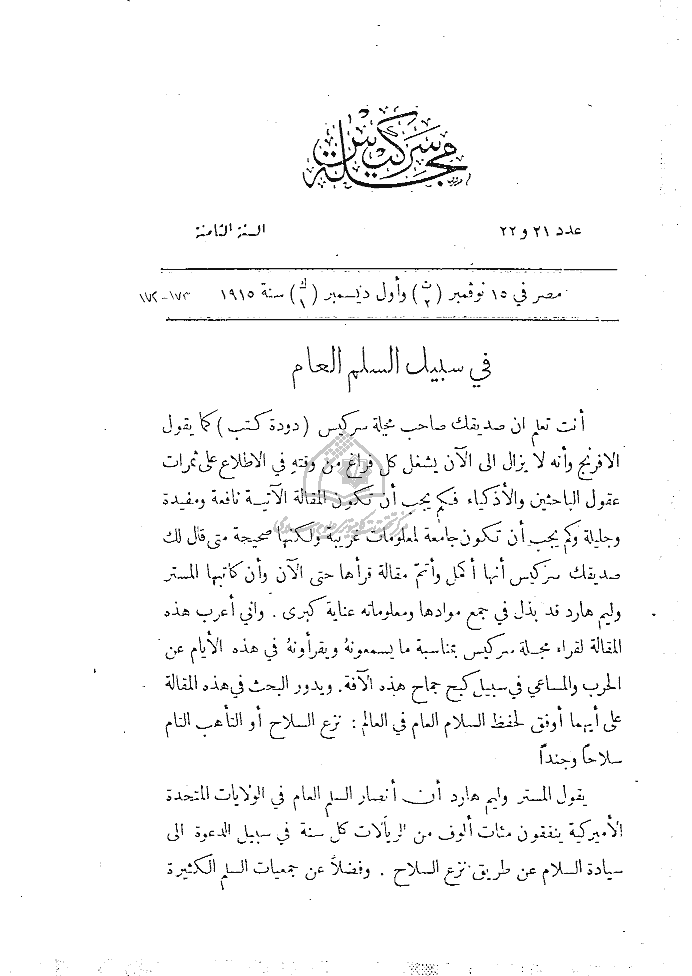 مجلة سركيس
عدد ٢١ و ٢٢
السنة الثامنة
مصر في ١٥ نوڤمبر (ت٢) وأول ديسمبر (ك١) سنة ١٩١٥ ١٧٣-١٧٢
في سبيل السلم العام
أنت تعلم ان صديقك صاحب مجلة سركيس (دودة كتب) كما يقول
الافرنج وأنه لا يزال الى الآن يشغل كل فراغ من وقته في الاطلاع على ثمرات
عقول الباحثين والأذكياء فكم يجب أن تكون المقالة الآتية نافعة ومفيدة
وجليلة وكم يجب أن تكون جامعة لمعلومات غريبة ولكنها صحيحة متى قال لك
صديقك سركيس أنها أكمل وأتمّ مقالة قرأها حتى الآن وأن كاتبها المستر
وليم هارد قد بذل في جمع موادها ومعلوماته عناية كبرى . واني أعرب هذه
المقالة لقراء مجلة سركيس بمناسبة ما يسمعونهُ ويقرأونهُ في هذه الأيام عن
الحرب والمساعي في سبيل كبح جماح هذه الآفة. ويدور البحث في هذه المقالة
على أيهما أوفق لحفظ السلام العام في العالم : نزع السلاح أو التأهب التام
سلاحاً وجنداً
يقول المستر وليم هارد أن أنصار السلم العام في الولايات المتحدة
الأميركية ينفقون مئات ألوف من الريالات كل سنة في سبيل الدعوة الى
سيادة السلام عن طريق نزع السلاح . وفضلاً عن جمعيات السلم الكثيرة